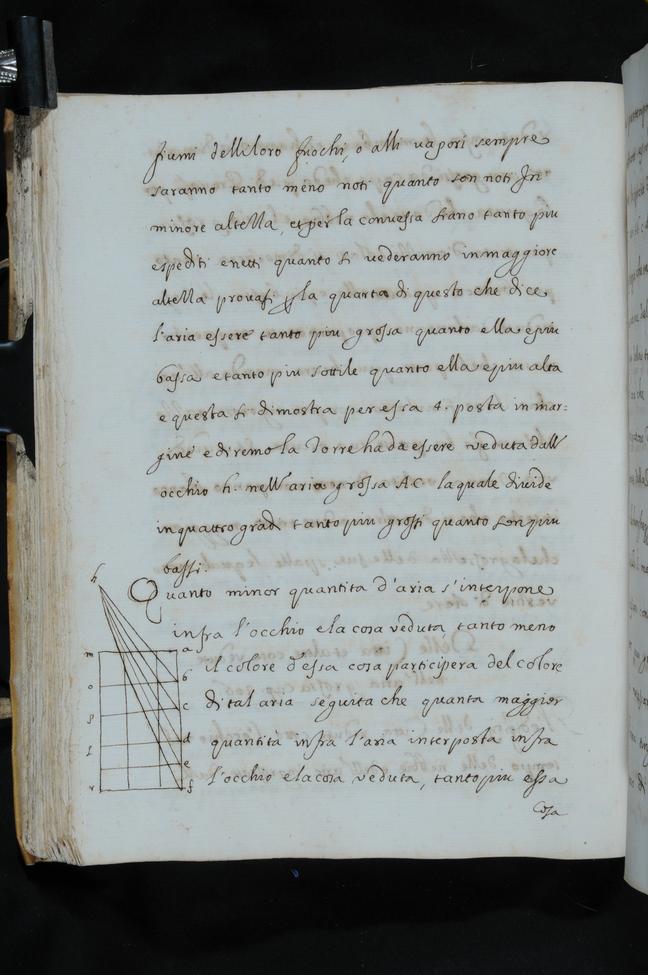 fiumi dell loro fuochi, o alli vapori sempre
saranno tanto meno noti quanto son noti In
minore altezza, et per la convessa siano tanto piu
espediti e netti quanto si vederanno in maggiore
altezza provasi per la quarta di questo che dice,
l'aria essere tanto piu grossa quanto ella e piu
bassa e tanto piu sottile quanto ella e piu alta
e questa si dimostra per essa 4. posta in mar:
gine e diremo la Torre ha da essere veduta dall
occhio h. nell'aria grossa AC la quale divide
in quattro gradi tanto piu grossi quanto son piu
bassi.
h
Quanto minor quantita d'aria s'interpone
infra l'occhio e la cosa veduta, tanto meno
m a
il colore d'essa cosa participera del colore
o b
di tal aria seguita che quanta maggior
p c
quantita infra l'aria interposta infra
d
e
l'occhio e la cosa veduta, tanto piu essa
r f
Cosa